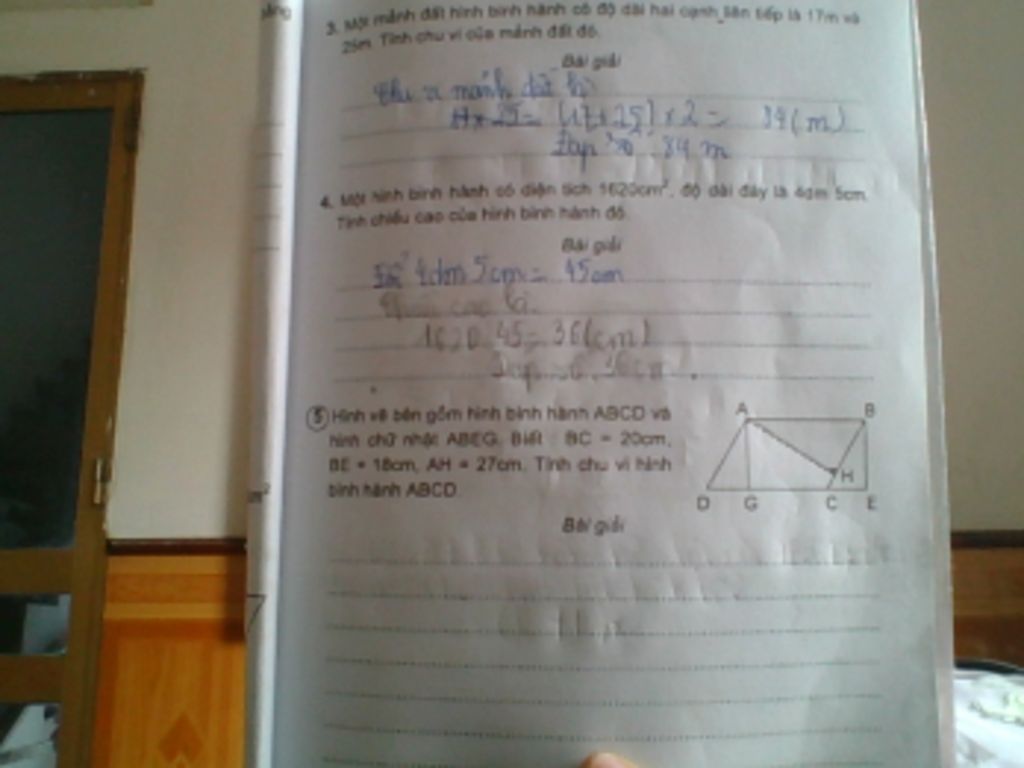 3. Một mảnh đất hình bình hành có độ dài hai cạnh liên tiếp là 17m và
25m. Tính chu vi của mảnh đất đó.
Bài giải
Chu vi mảnh đất là
[17+25] x 2 = 84 (m)
Đáp số 84 m
4. Một hình bình hành có diện tích 1620cm², độ dài đáy là 4dm 5cm.
Tính chiều cao của hình bình hành đó.
Bài giải
4dm 5cm = 45cm
cao là
1620 : 45 = 36 (cm)
Đáp số 36cm
5 Hình vẽ bên gồm hình bình hành ABCD và
hình chữ nhật ABEG. Biết : BC = 20cm,
BE = 18cm, AH = 27cm. Tính chu vi hình
bình hành ABCD.
A B
H
D G C E
Bài giải